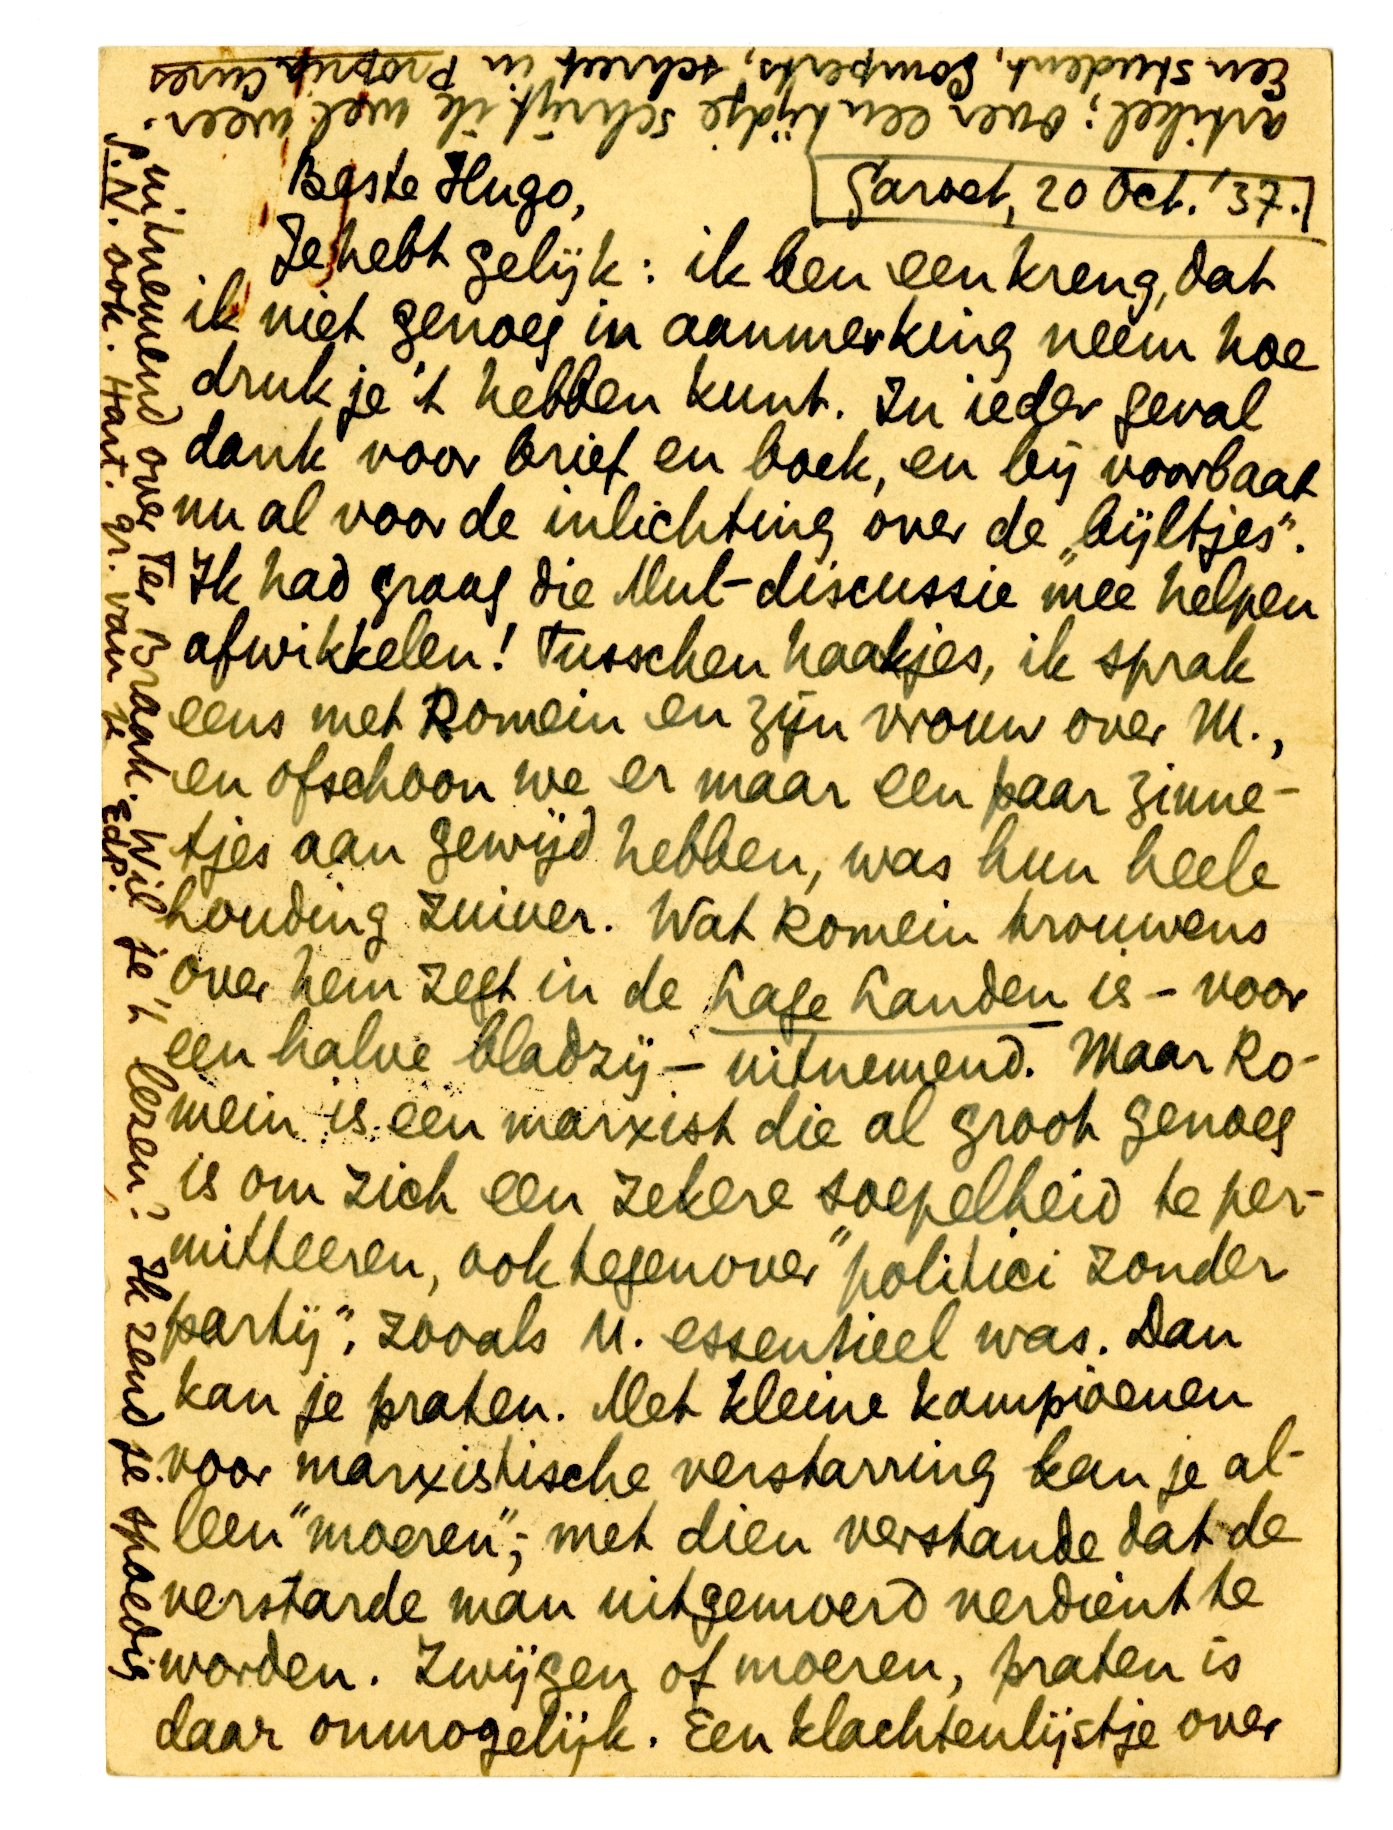 Garoet, 20 Oct. '37.
Beste Hugo,
Je hebt gelijk: ik ben een kreng, dat
ik niet genoeg in aanmerking neem hoe
druk je 't hebben kunt. In ieder geval
dank voor brief en boek, en bij voorbaat
nu al voor de inlichting over de „bijltjes".
Ik had graag die Mul-discussie mee helpen
afwikkelen! Tusschen haakjes, ik sprak
eens met Romein en zijn vrouw over M.,
en ofschoon we er maar een paar zinne-
tjes aan gewijd hebben, was hun heele
houding zuiver. Wat Romein trouwens
over hem zegt in de Lage Landen is – voor
een halve bladzij – uitnemend. Maar Ro-
mein is een marxist die al groot genoeg
is om zich een zekere soepelheid te per-
mitteeren, ook tegenover "politici zonder
partij", zooals M. essentieel was. Dan
kan je praten. Met kleine kampioenen
voor marxistische verstarring kan je al-
leen "moeren"; met dien verstande dat de
verstarde man uitgemoerd verdient te
worden. Zwijgen of moeren, praten is
daar onmogelijk. Een klachtenlijstje over
artikel; over een tijdje schrijf ik wel weer.
Een student, Gomperts, schreef in Propria Cures
uitnemend over Ter Braak. Wil je 't lezen? Ik zend je spoedig
S.N. ook. Hart. gr. van je
EdP.